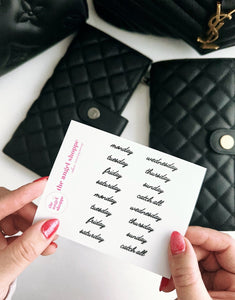 the angel shoppe
monday
tuesday
friday
saturday
monday
tuesday
friday
saturday
wednesday
thursday
sunday
catch all
wednesday
thursday
sunday
catch all
the angel shoppe